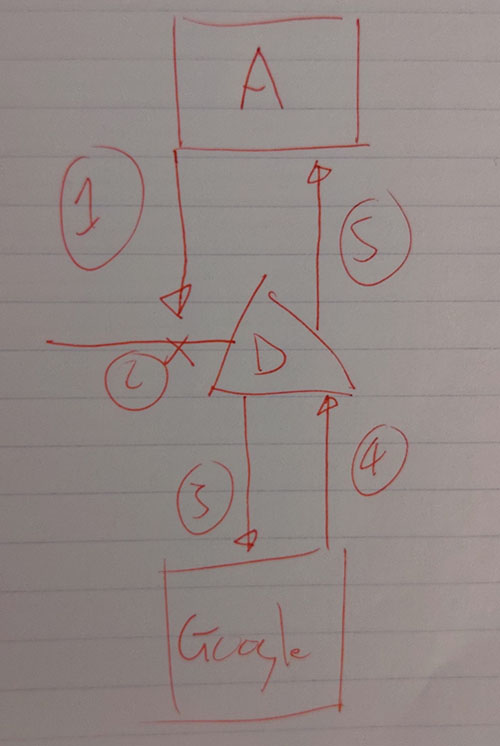 A
1
5
D
2
3
4
Google